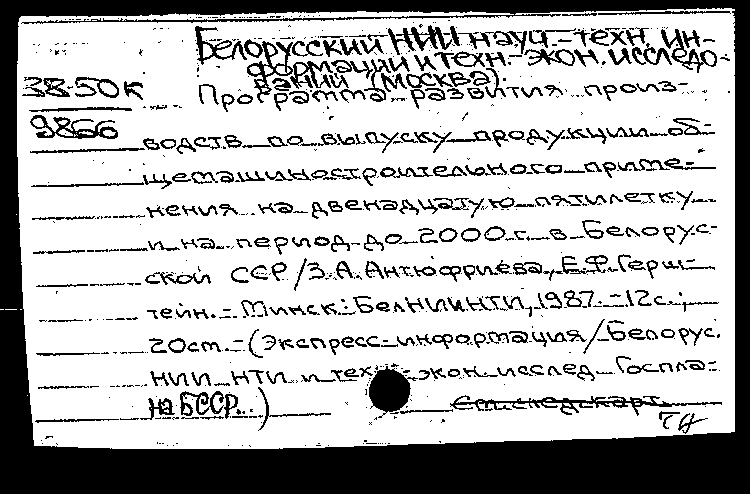 Белорусский НИИ науч.-техн. ин-
формации и техн.-экон. исследо-
ваний (Москва).
38-50к
Программа развития произ-
9866
водств по выпуску продукции об-
щемашиностроительного приме-
нения на двенадцатую пятилетку
и на период до 2000 г. в Белорус-
ской ССР/З.А.Антюфриева, Е.Ф.Герш-
тейн.- Минск: БелНИИНТИ, 1987.-12с.;
20см.-(Экспресс-информация/Белорус.
НИИ НТИ и техн.-экон. исслед. Госпла-
на БССР.)
См.след.карт.